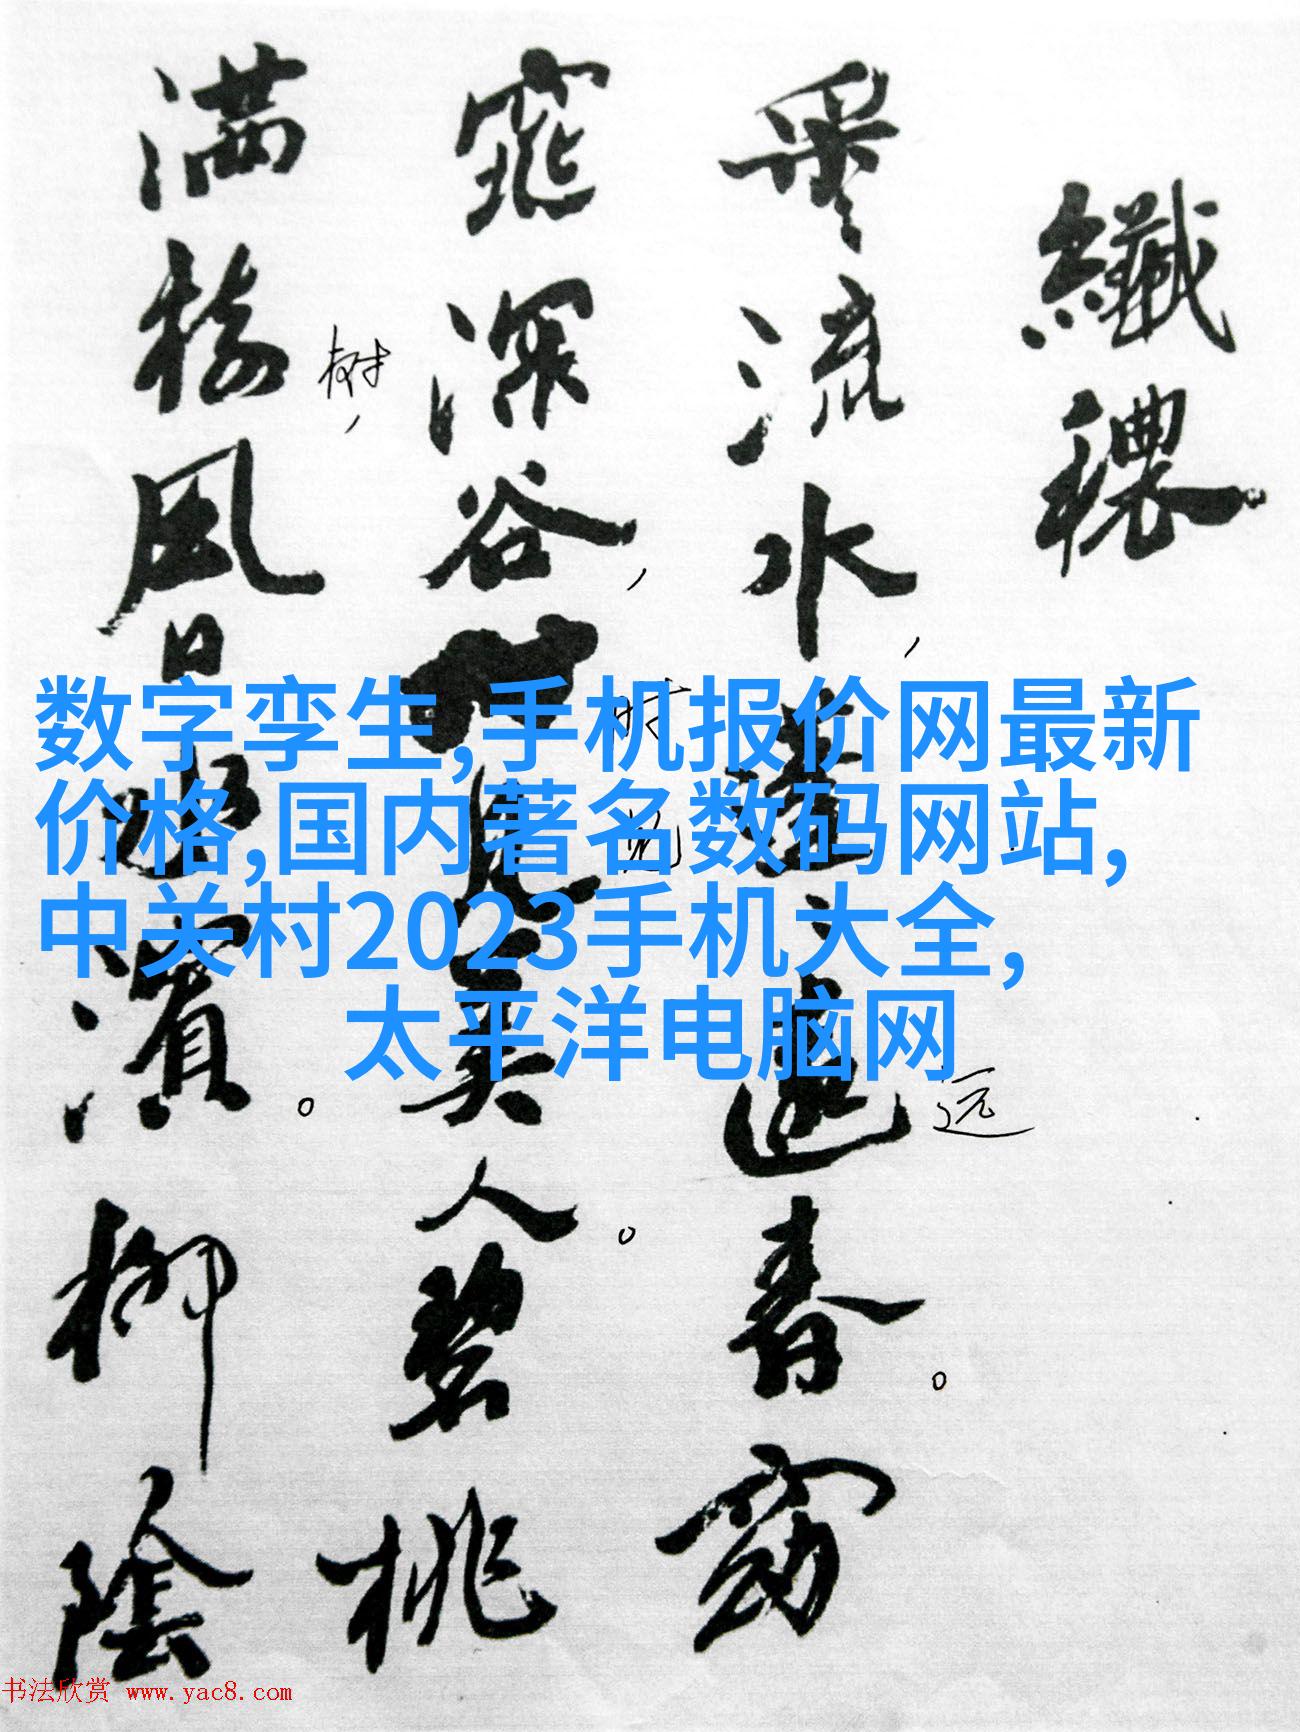 纖穠
采〻流水，蓬〻遠春。窈
远
窕深谷，見美人。碧桃
时
满樹，風日水濱。柳陰
树
数字孪生,手机报价网最新
价格,国内著名数码网站,
中关村2023手机大全,
太平洋电脑网
书法欣赏 www.yac8.com